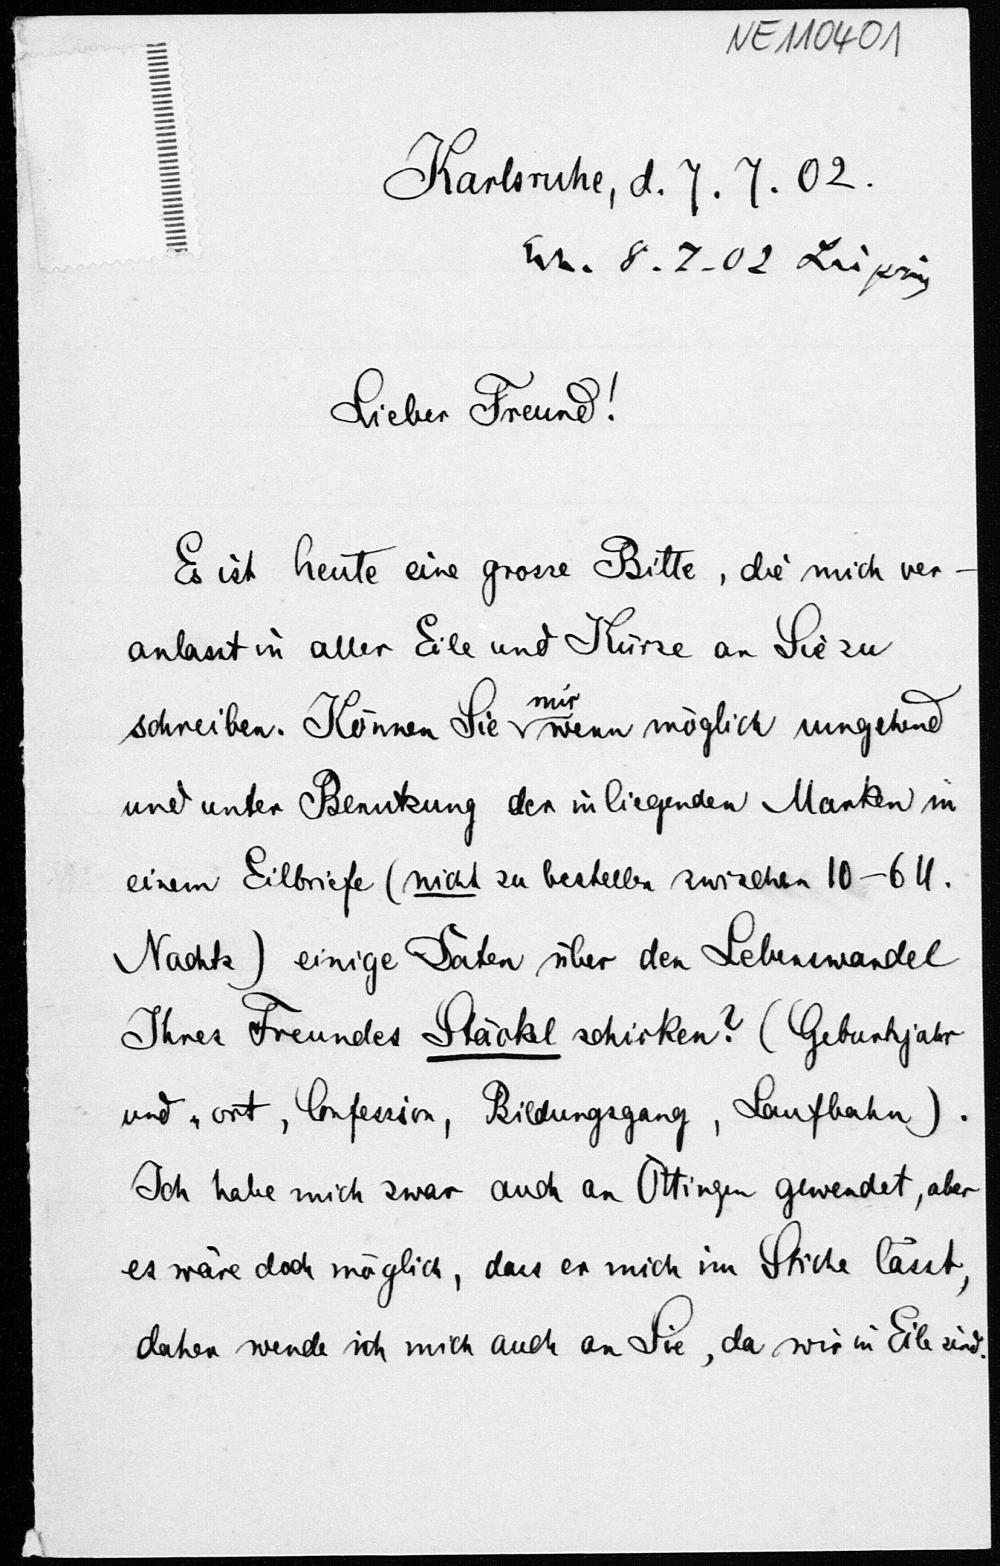 NE110401
Karlsruhe, d. 7. 7. 02.
Erh. 8. 7. 02 Leipzig
Lieber Freund!
Es ist heute eine grosse Bitte, die mich ver-
anlasst in aller Eile und Kürze an Sie zu
mir
schreiben. Können Sie wenn möglich umgehend
und unter Benutzung der inliegenden Marken in
einem Eilbriefe (nicht zu bestellen zwischen 10-6 U.
Nachts) einige Daten über den Lebenswandel
Ihres Freundes Stäckel schicken? (Geburtsjahr
und " ort, Confession, Bildungsgang, Laufbahn).
Ich habe mich zwar auch an Öttingen gewendet, aber
es wäre doch möglich, dass er mich im Stiche lässt,
daher wende ich mich auch an Sie, da wir in Eile sind.